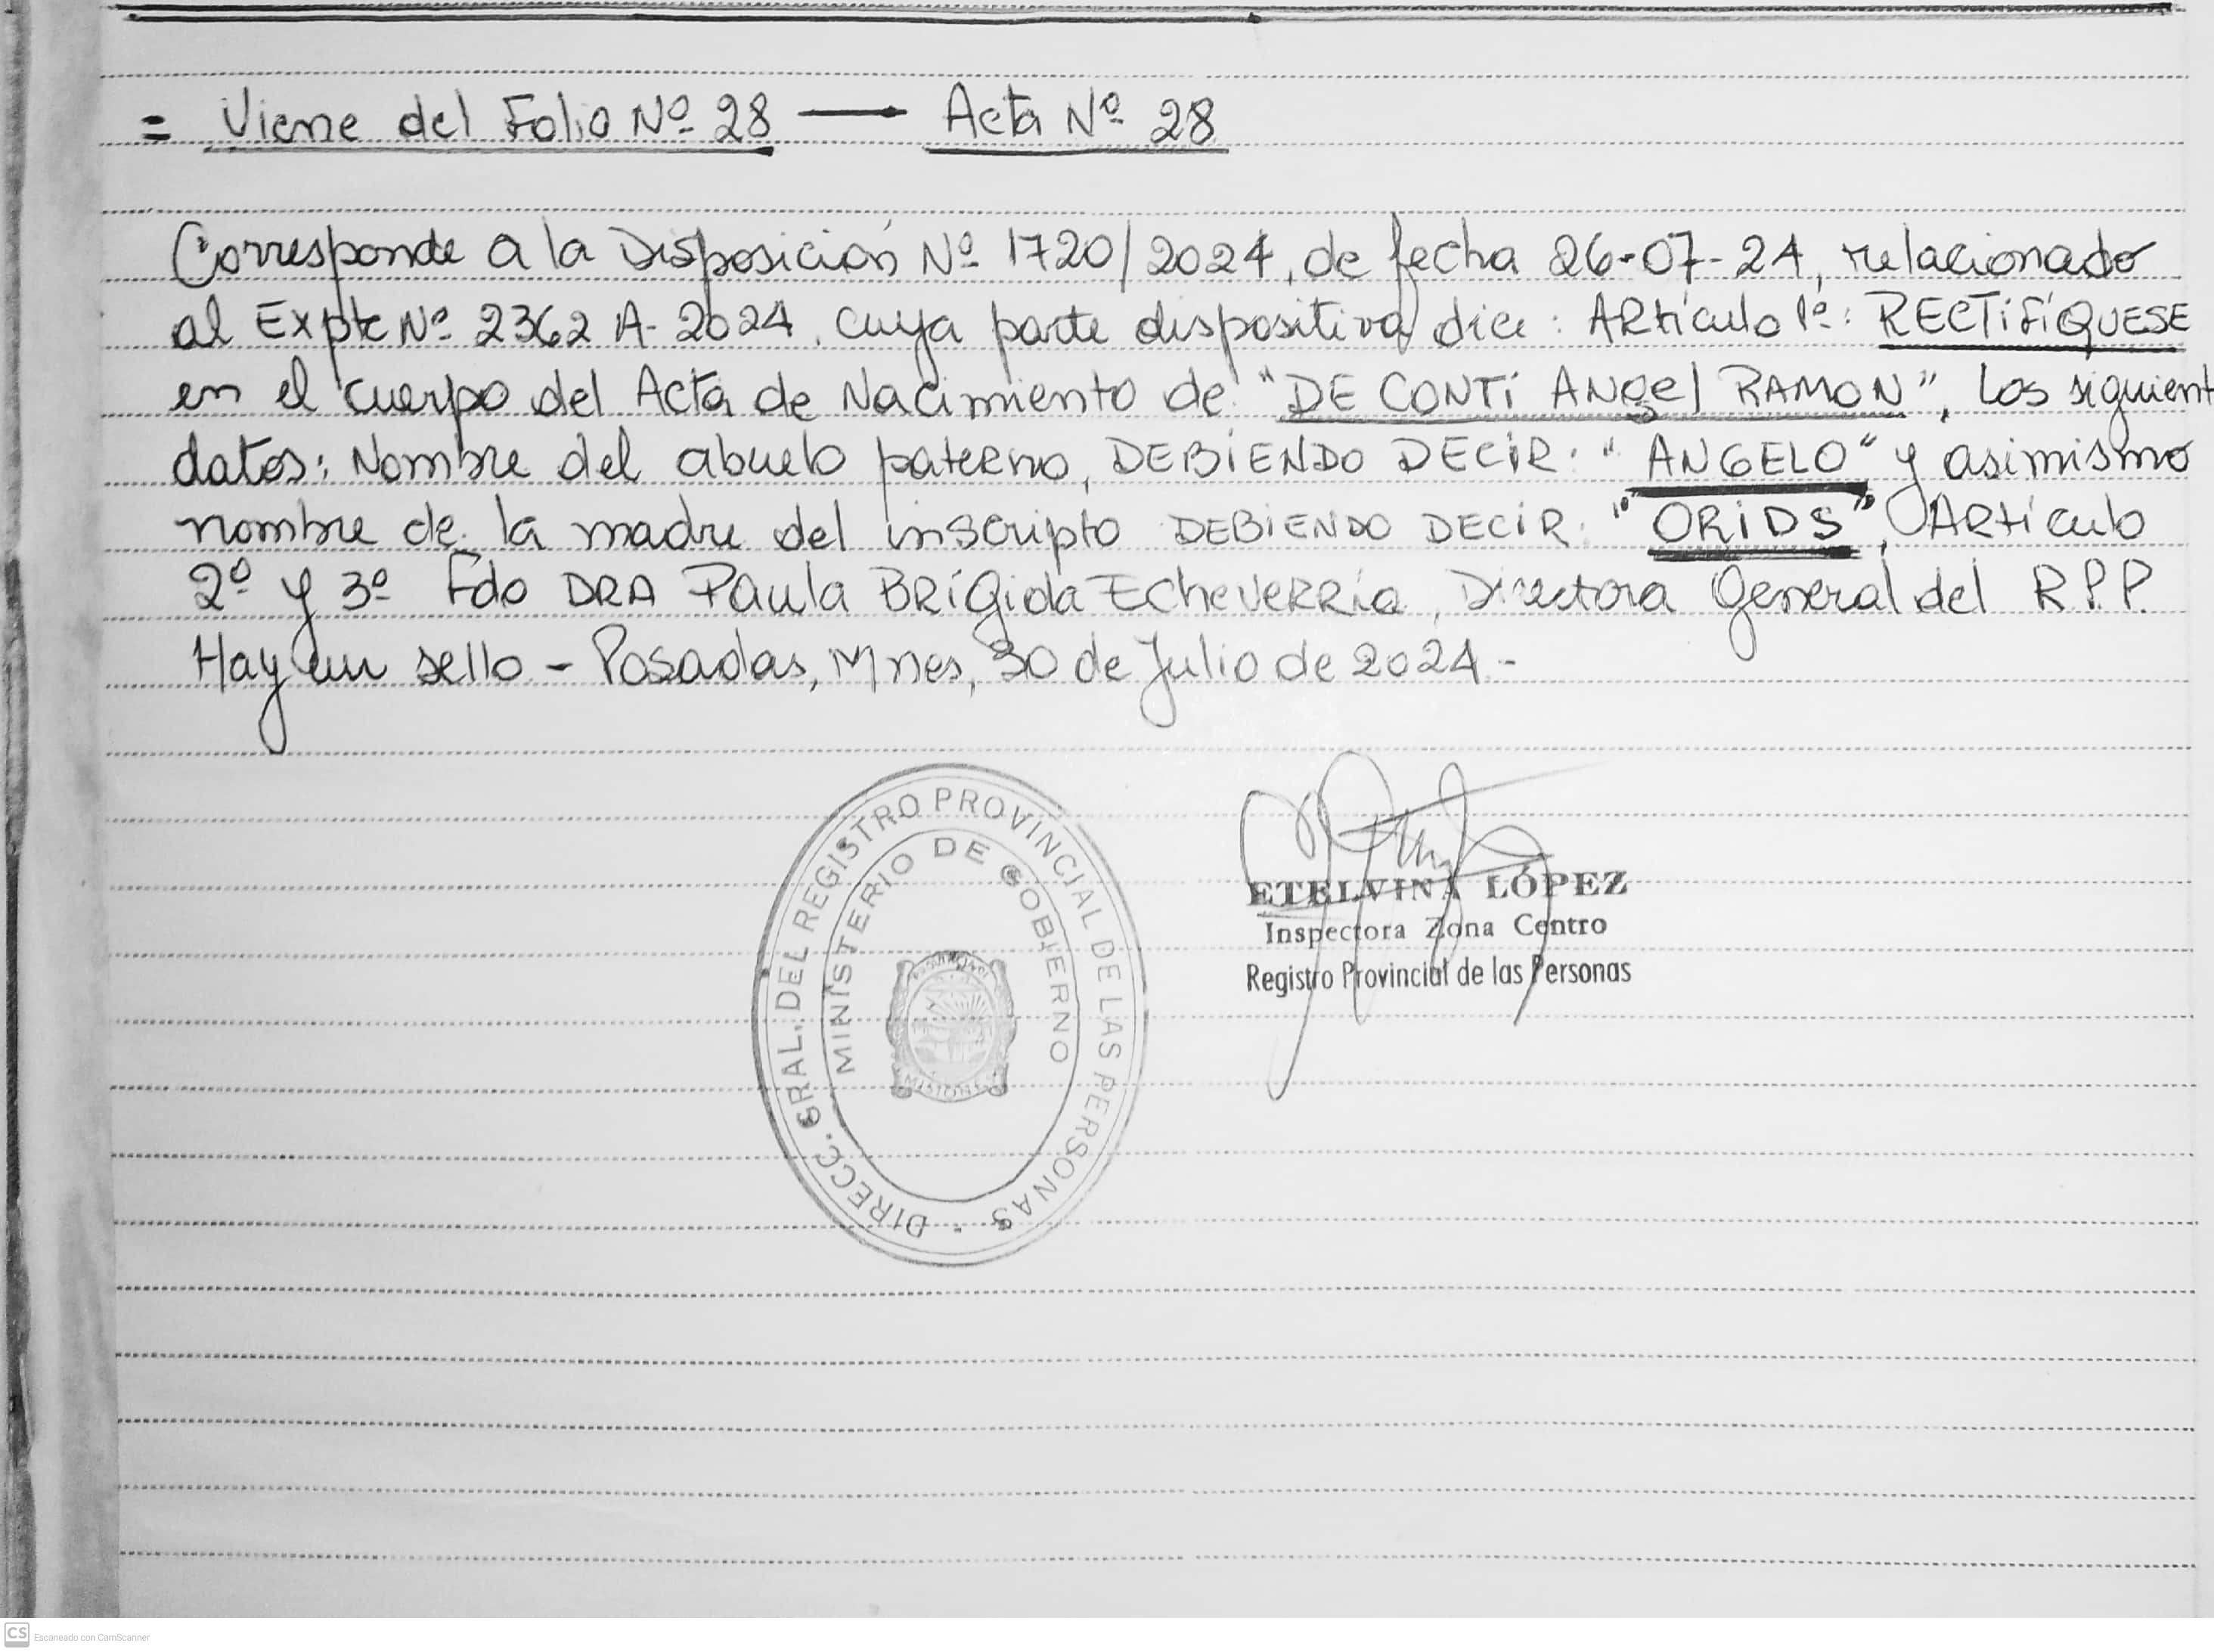 = Viene del Folio Nº 28 — Acta Nº 28
Corresponde a la Disposición Nº 1720/2024, de fecha 26-07-24, relacionado
al Expte Nº 2362 A-2024. cuya parte dispositiva dice: Artículo 1º: RECTIFÍQUESE
en el cuerpo del Acta de Nacimiento de "DE CONTI ANgel RAMON", Los siguient
datos: Nombre del abuelo paterno, DEBIENDO DECIR: "ANGELO" y asimismo
nombre de la madre del inscripto DEBIENDO DECIR: "ORIDS", Artículo
2º y 3º Fdo DRA Paula BRígida EcheVERRía, Directora General del R.P.P.
Hay un sello - Posadas, Mnes, 30 de Julio de 2024.-
DIRECC. GRAL. DEL REGISTRO PROVINCIAL DE LAS PERSONAS
MINISTERIO DE GOBIERNO
MISIONES
ETELVINA LÓPEZ
Inspectora Zona Centro
Registro Provincial de las Personas
CS Escaneado con CamScanner